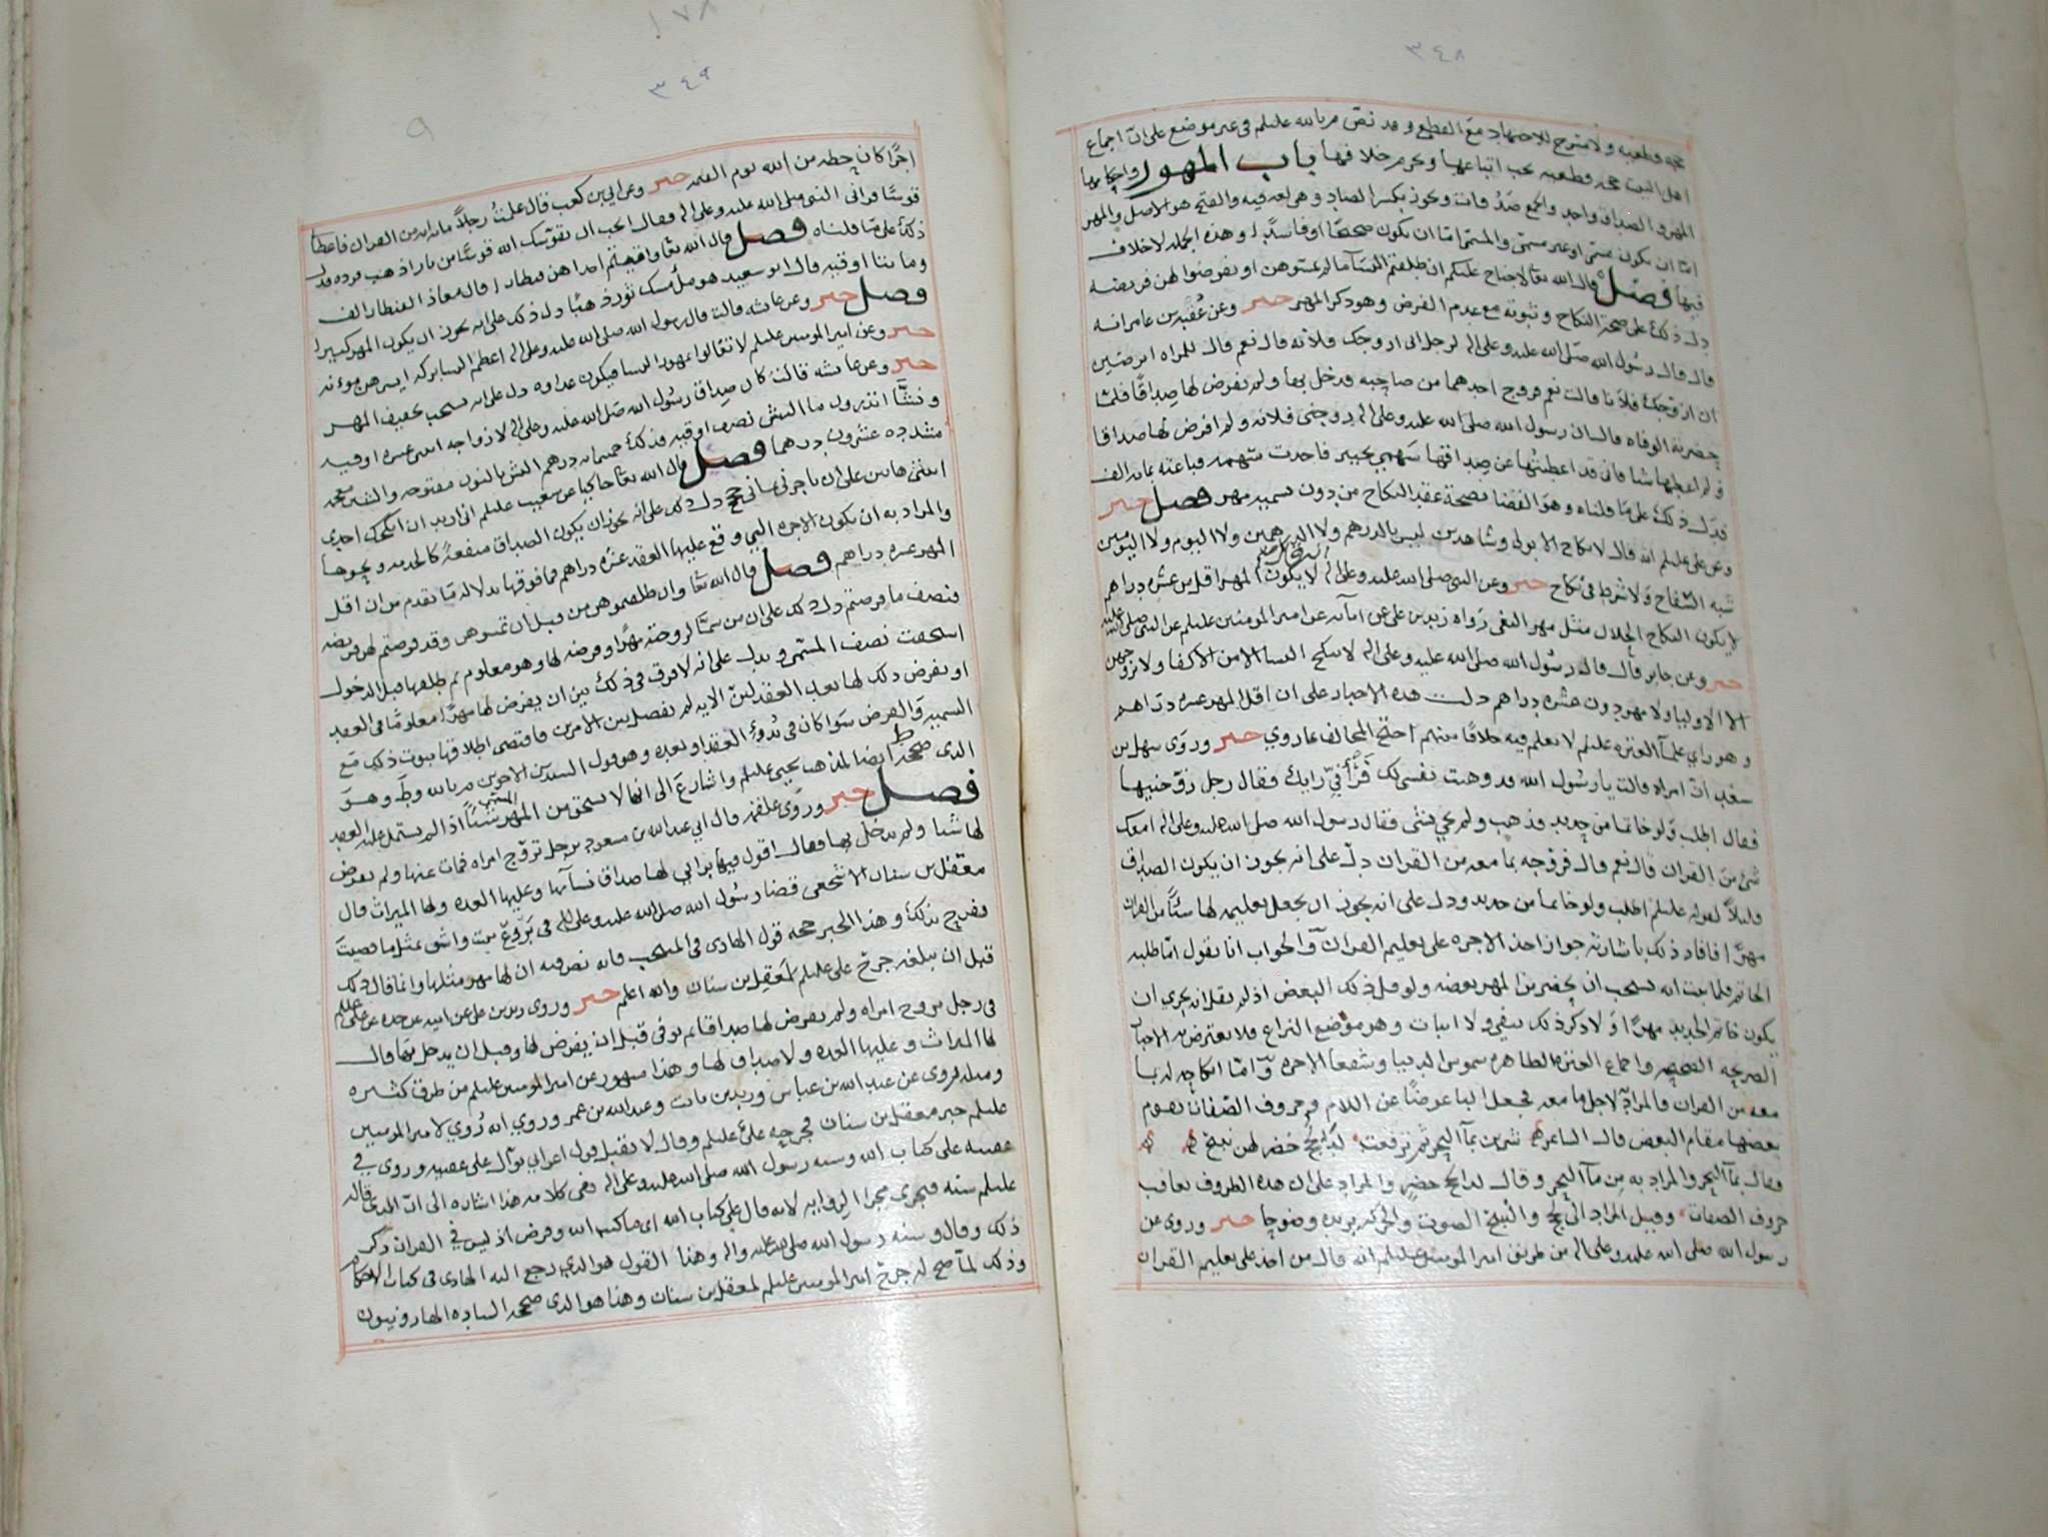 ٣٤٨
اهل البيت حجه قطعيه يجب اتباعها ويحرم خلافها باب المهور واحكامها
المهر والصداق واحد والجمع صدق وانت ويجوز بكسر الصاد وهى لغه فيه والفتح هو الاصل والمهر
اما ان يكون مسمى او غير مسمى والمسمى اما ان يكون صحيحا او فاسدا وهذه الجمله لا خلاف
فيها فصل قال الله تعا لا جناح عليكم ان طلقتم النسآ ما لم تمسوهن او تفرضوا لهن فريضه
دل ذلك على صحة النكاح وثبوته مع عدم الفرض وهو ذكر المهر خبر وعن عقبه بن عامر انه
قال قال رسول الله صلى الله عليه وعلى اله لرجل اترضى ان ازوجك فلانه قال نعم قال للمراه اترضين
ان ازوجك فلانا قالت نعم فزوج احدهما من صاحبه فدخل بها ولم يفرض لها صداقا فلما
حضرته الوفاه قال ان رسول الله صلى الله عليه وعلى اله زوجنى فلانه ولم افرض لها صداقا
ولم اعطها شيا وانى قد اعطيتها عن صداقها سهمى بخيبر فاخذت سهمه فباعته بمايه الف
فدل ذلك على ما قلناه وهو القضا بصحة عقد النكاح من دون تسميه مهر فصل خبر
وعن على عليلم انه قال لا نكاح الا بولى وشاهدين ليس بالدرهم ولا الدرهمين ولا اليوم ولا اليومين
شبه السفاح ولا شرط فى نكاح خبر وعن النبى صلى الله عليه وعلى اله لا يكون المهر اقل من عشره دراهم
لا يكون النكاح الحلال مثل مهر البغى رواه زيد بن على عن ابآئه عن امير المومنين عليلم عن النبى صلى الله عليه
خبر وعن جابر قال قال رسول الله صلى الله عليه وعلى اله لا ينكح النسا الا من الاكفا ولا يزوجهن
الا الاوليا ولا مهر دون عشره دراهم دلت هذه الاخبار على ان اقل المهر عشره دراهم
وهو راي علمآ العتره عليلم لا نعلم فيه خلافا بينهم احتج المخالف بما روي خبر وروى سهل بن
سعد ان امراه قالت يا رسول الله قد وهبت نفسى لك فرأ فيّ رايك فقال رجل زوجنيها
فقال اطلب ولو خاتما من حديد فذهب ولم يجي بشى فقال رسول الله صلى الله عليه وعلى اله امعك
شئ من القران قال نعم قال فزوجه بما معه من القران دل على انه يجوز ان يكون الصداق
قليلا لقوله عليلم اطلب ولو خاتما من حديد ودل على انه يجوز ان يجعل تعليمه لها شيا من القران
مهرا فافاد ذلك باشارته جواز اخذ الاجره على تعليم القران والجواب انا نقول انما طلبه
يكون خاتم الحديد مهرا ولا ذكر ذلك بنفي ولا اثبات وهو موضع النزاع فلا يعترض به الاخبار
معه من القران والمراد لاجل ما معه فجعل البا عوضا عن اللام وحروف الصفات تقوم
بعضها مقام البعض قال الشاعر شربن بمآ البحر ثم ترفعت لدى لجج خضر لهن نئيج
فقال بمآ البحر والمراد به من مآ البحر وقال لدى لجج خضر والمراد على ان هذه الظروف تعاقب
رسول الله صلى الله عليه وعلى اله من طريق امير المومنين عليلم انه قال من اخذ على تعليم القران
٣٤٩
اجرا كان حظه من الله يوم القيمه خبر وعن ابي بن كعب قال علمت رجلا مايه ايه من القران فاعطا
قوسا فراني النبى صلى الله عليه وعلى اله فقال اتحب ان يقوسك الله قوسا من نار اذهب فرده دل
ذلك على ما قلناه فصل قال الله تعا واتيتم احداهن قنطارا قال معاذ القنطار الف
ومايتا اوقيه قال ابو سعيد هو ملء مسك ثور ذهبا دل ذلك على انه يجوز ان يكون المهر كثيرا
فصل خبر وعن عائشه قالت قال رسول الله صلى الله عليه وعلى اله اعظم النسا بركه ايسرهن موءنه
خبر وعن امير المومنين عليلم لا تغالوا بمهور النسا فيكون عداوه دل على انه يستحب تخفيف المهر
خبر وعن عائشه قالت كان صداق رسول الله صلى الله عليه وعلى اله لازواجه اثنى عشره اوقيه
ونشا اتدرون ما النش نصف اوقيه فذلك خمسمايه درهم النش بالنون مفتوحه والشين معجمه
مشدده عشرون درهما فصل قال الله تعا حاكيا عن شعيب عليلم انى اريد ان انكحك احدى
ابنتى هاتين على ان تاجرنى ثمانى حجج دل ذلك على انه يجوز ان يكون الصداق منفعة كالخدمه ونحوها
والمراد به ان يكون الاجره التي وقع عليها العقد عشره دراهم فما فوقها بدلاله ما تقدم من ان اقل
المهر عشره دراهم فصل قال الله تعا وان طلقتموهن من قبل ان تمسوهن وقد فرضتم لهن فريضه
فنصف ما فرضتم دل ذلك على ان من سمى لزوجته مهرا او فرضه لها وهو معلوم ثم طلقها قبل الدخول
استحقت نصف المسمى ويدل على انه لا فرق فى ذلك بين ان يفرض لها مهرا معلوما فى العقد
او يفرض ذلك لها بعد العقد لان الايه لم تفصل بين الامرين فاقتضى اطلاقها ثبوت ذلك مع
التسميه والفرض سوا كان فى بدوء العقد او بعده وهو قول السيدين الاخوين م بالله وط وهو
الذى صححه ط ايضا لمذهب يحيى عليلم واشار ع الى انها لا تستحق من المهر شيئا اذا لم يشتمل عليه العقد
فصل خبر وروى علقمه قال اتي عبد الله بن مسعود برجل تزوج امراه فمات عنها ولم يفرض
لها شيا ولم يدخل بها فقال اقول فيها برايي لها صداق نسآئها وعليها العده ولها الميراث قال
معقل بن سنان الاشجعى قضا رسول الله صلى الله عليه وعلى اله فى بروع بنت واشق بمثل ما قضيت
ففرح بذلك وهذا الخبر حجه قول الهادى فى المنتخب فانه نص فيه ان لها مهر مثلها وانما قال ذلك
قبل ان يبلغه جرح على عليلم لمعقل بن سنان والله اعلم خبر وروى زيد بن على عن ابيه عن جده عن على عليلم
فى رجل تزوج امراه ولم يفرض لها صداقا ثم توفى قبل ان يفرض لها وقبل ان يدخل بها قال
لها الميراث وعليها العده ولا صداق لها وهذا مشهور عن امير المومنين عليلم من طرق كثيره
ومثله مروى عن عبد الله بن عباس وزيد بن ثابت وعبد الله بن عمر وروي انه رُوي لامير المومنين
عليلم خبر معقل بن سنان فجرحه على عليلم وقال لا نقبل قول اعرابى بوال على عقبيه وروى فى
ذلك وقال وسنه رسول الله صلى الله عليه واله وهذا القول هو الذي رجع اليه الهادى فى كتاب الاحكام
وذلك لمآ صح له جرح امير المومنين عليلم لمعقل بن سنان وهذا هو الذى صححه الساده الهارونيون